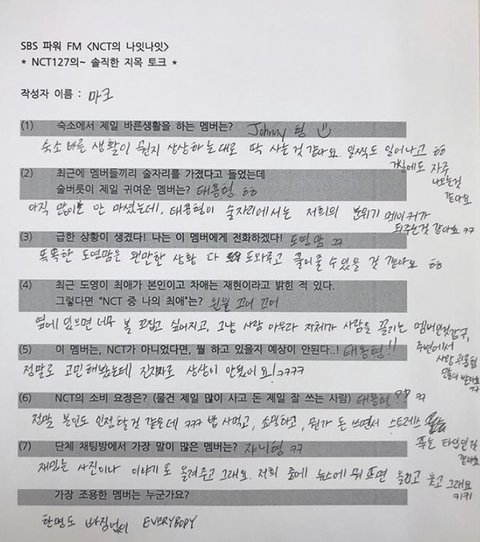 SBS 파워 FM <NCT의 나잇나잇>
* NCT127의~ 솔직한 지목 토크 *
작성자 이름 : 마크
(1) 숙소에서 제일 바른생활을 하는 멤버는? Johnny 형
숙소 바른 생활이 뭔지 상상하는대로 딱 사는것 같아요. 일찍도 일어나고 ㅎㅎ
거실에도 자주
나오는것
같아요
(2) 최근에 멤버들끼리 술자리를 가졌다고 들었는데
술버릇이 제일 귀여운 멤버는? 태용형 ㅎㅎ
아직 많이는 안 마셨는데, 태용형이 술자리에서는 저희의 분위기 메이커가
되주는것 같아요 ㅋㅋ
(3) 급한 상황이 생겼다! 나는 이 멤버에게 전화하겠다! 도영맘 ㅋㅋ
똑똑한 도영맘은 웬만한 상황 다 도와주고 풀어줄 수 있을 것 같아요 ㅎㅎ
(4) 최근 도영이 최애가 본인이고 차애는 재현이라고 밝힌 적 있다.
그렇다면 "NCT 중 나의 최애"는? 윈윈 고이 고이
옆에 있으면 너무 볼 꼬집고 싶어지고, 그냥 사람 아우라 자체가 사람을 끌기는 멤버인것같구,
주변에서
사랑
(5) 이 멤버는, NCT가 아니었다면, 뭘 하고 있을지 예상이 안된다..! 태용형!!
정말로 고민해봤는데 진짜로 상상이 안됐어요! ㅋㅋㅋㅋ
(6) NCT의 소비 요정은? (물건 제일 많이 사고 돈 제일 잘 쓰는 사람) 태용형?? ㅋㅋ
정말 본인도 인정할것 같은데 ㅋㅋㅋ 밥 사먹고, 쇼핑하고, 뭔가 돈 쓰면서 스트레스
푸는 타입인것
같아요
(7) 단체 채팅방에서 가장 말이 많은 멤버는? 쟈니형 ㅋㅋ
재밌는 사진이나 이야기도 들려주고 그래요. 저희 중에 뉴스에 뭐 뜨면 웃고 그래요
키키
가장 조용한 멤버는 누군가요?
한명도 빠짐없이 EVERYBODY